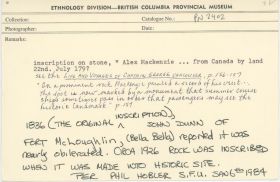 ETHNOLOGY DIVISION—BRITISH COLUMBIA PROVINCIAL MUSEUM
Collection: Catalogue No.: PN 2402
Photographer: Date:
Remarks:
inscription on stone, " Alex Mackenzie ... from Canada by land
22nd. July 179?
see the Life and Voyages of Captain George Vancouver p. 156-157
"On a prominent rock Mackenzie painted a record of his visit.
The spot is now marked by a monument that summer cruise
ships sometimes pass in order that passengers may see the
historic landmark"
1836 (THE ORIGINAL INSCRIPTION), JOHN DUNN OF
FORT McLOUGHLIN, (Bella Bella) reported it was
nearly obliterated. CIRCA 1926 ROCK WAS INSCRIBED
WHEN IT WAS MADE INTO HISTORIC SITE.
PER PHIL HOBLER S.F.U. JAN 6th 1984